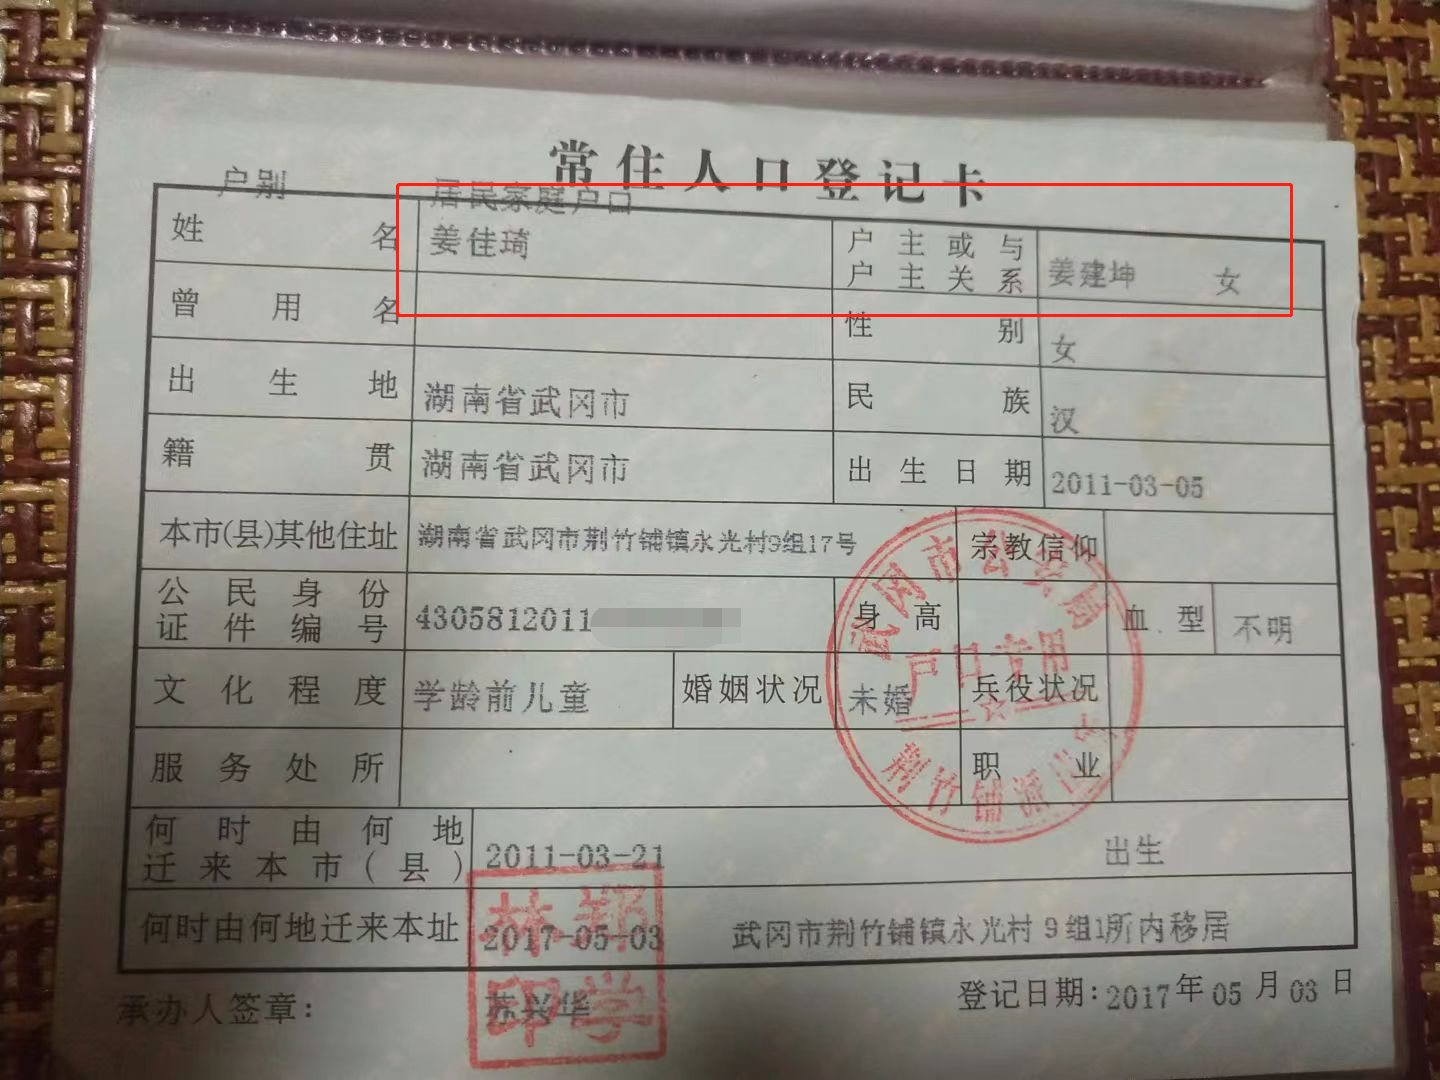 常住人口登记卡
户别 居民家庭户口
姓名 姜佳琦 户主或与户主关系 姜建坤 女
曾用名 性别 女
出生地 湖南省武冈市 民族 汉
籍贯 湖南省武冈市 出生日期 2011-03-05
本市(县)其他住址 湖南省武冈市荆竹铺镇永光村9组17号 宗教信仰
公民身份证件编号 4305812011 身高 血型 不明
文化程度 学龄前儿童 婚姻状况 未婚 兵役状况
服务处所 职业
何时由何地迁来本市(县) 2011-03-21 出生
何时由何地迁来本址 2017-05-03 武冈市荆竹铺镇永光村9组1所内移居
承办人签章: 苏兴华 登记日期:2017年05月03日
武冈市公安局
户口专用
荆竹铺派出所